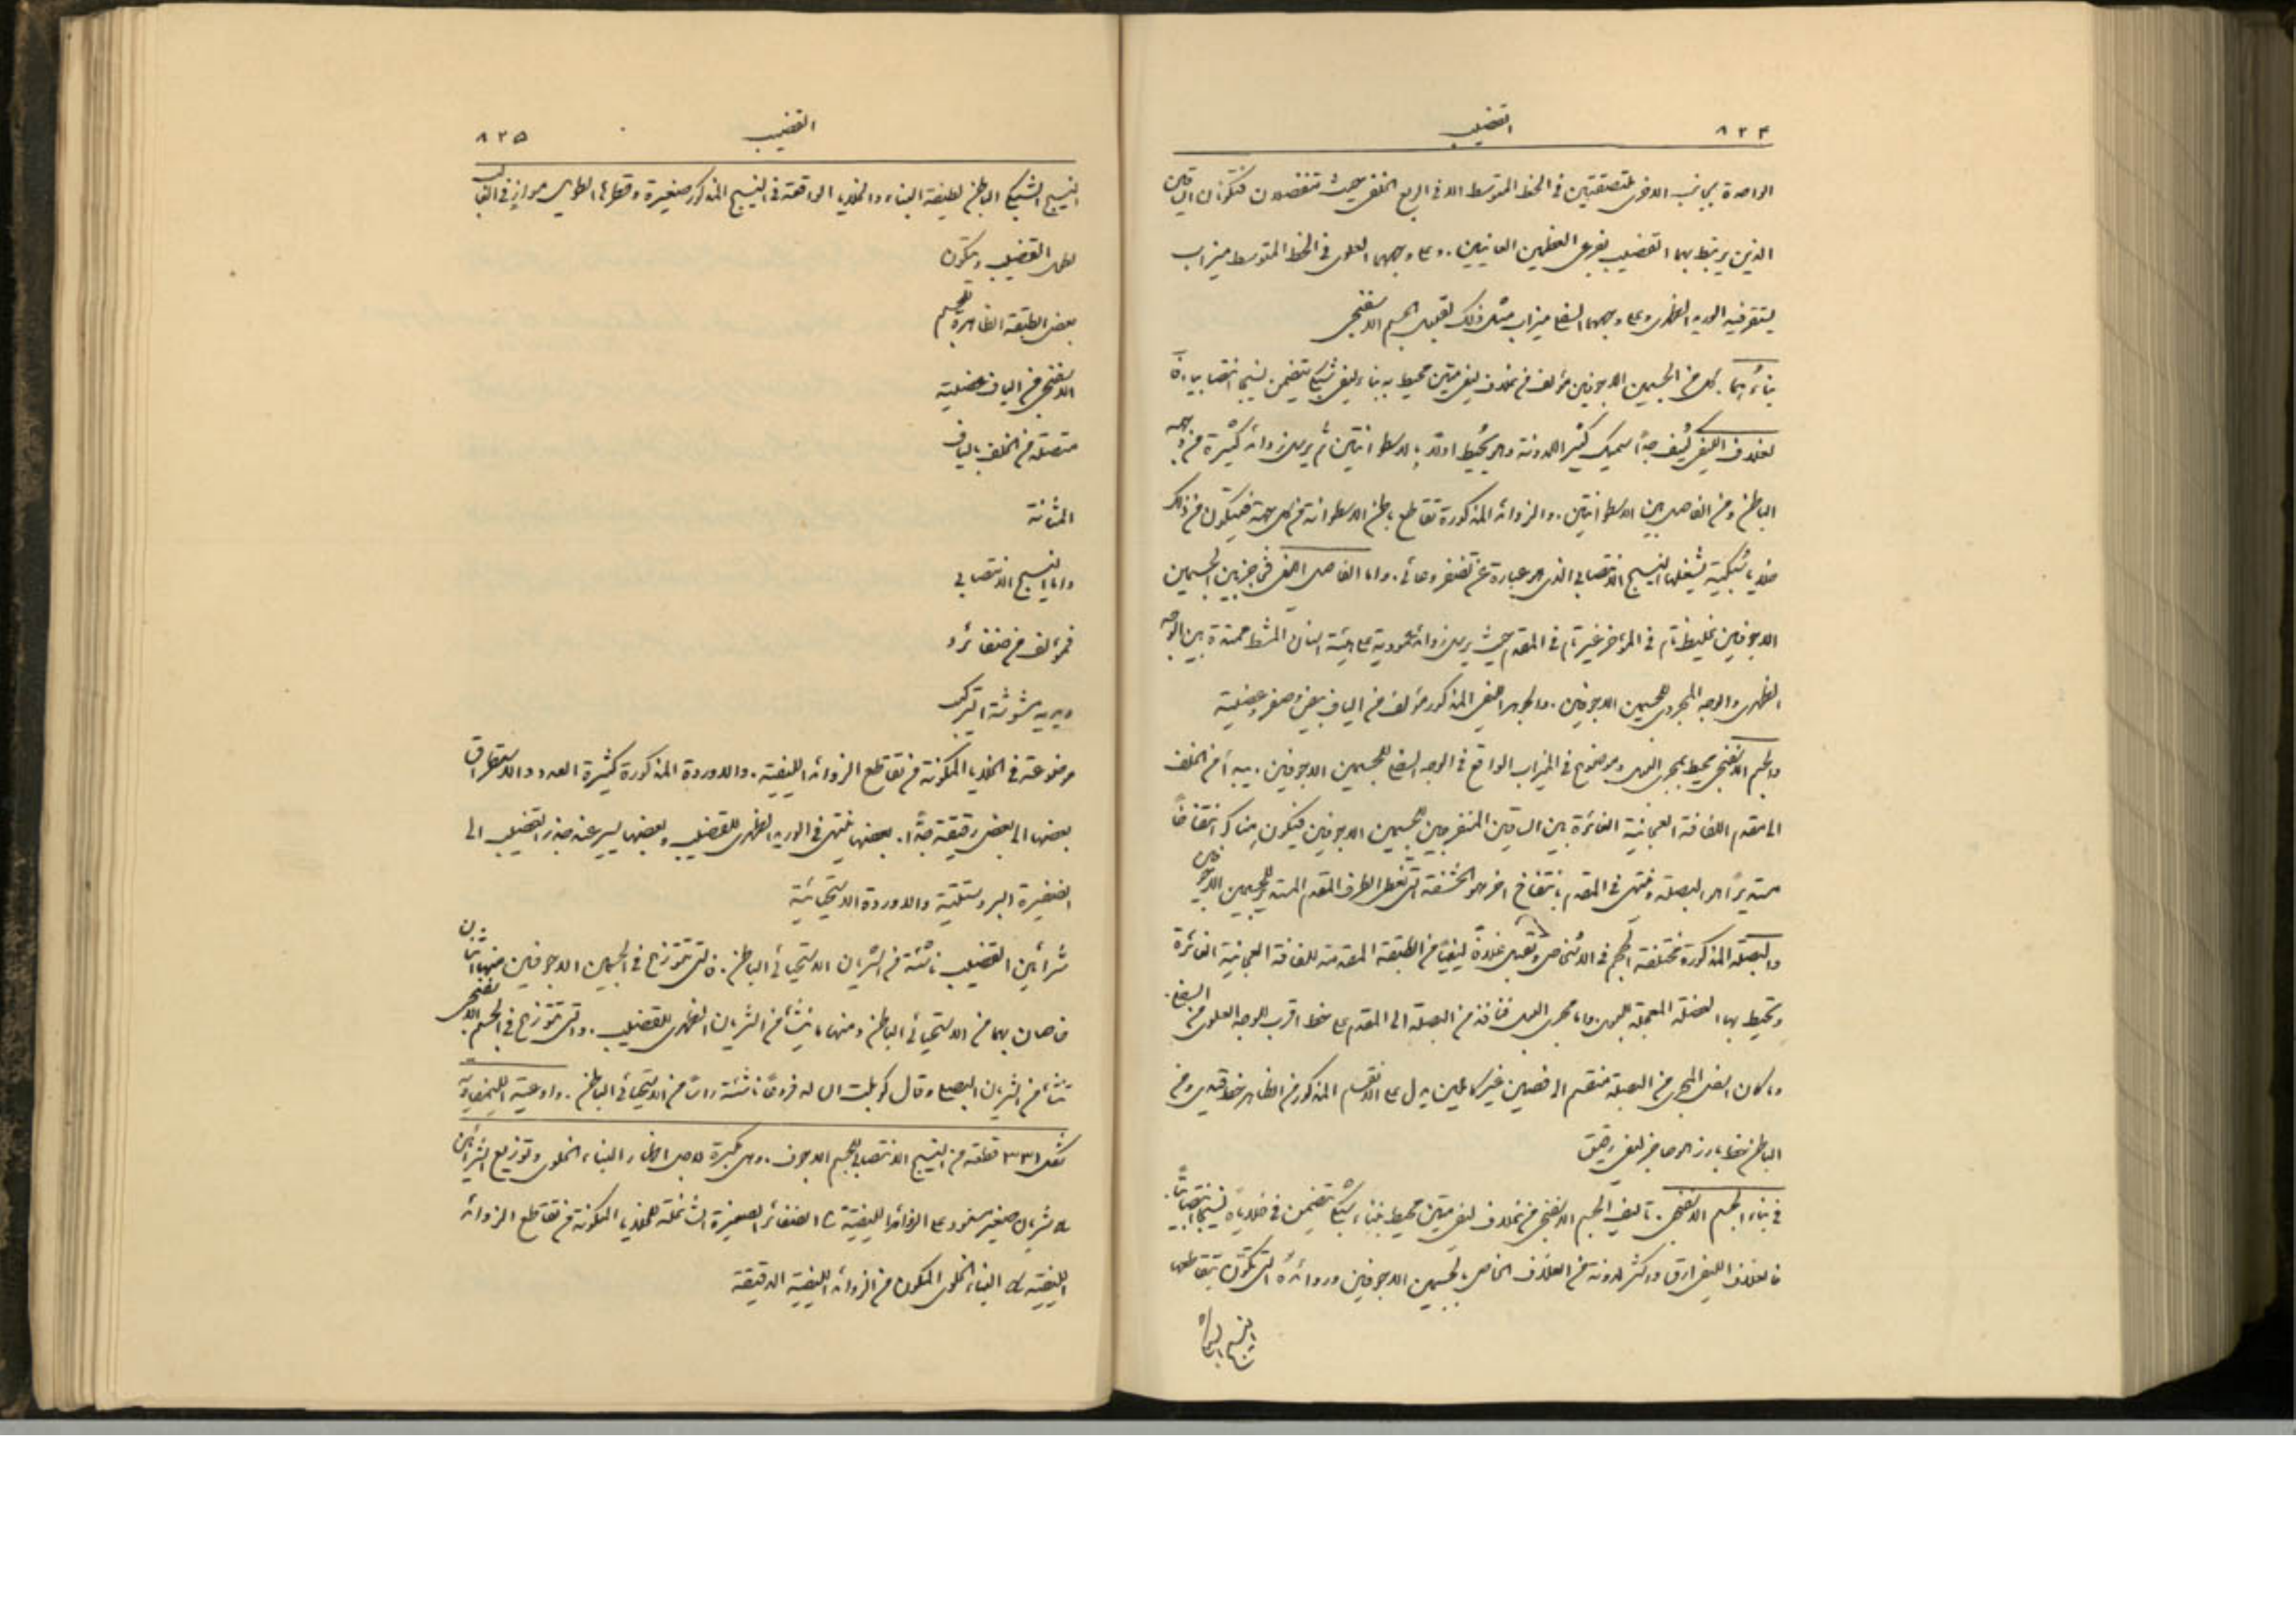 ٨٢٤ القضيب
الواحدة بجانب الاخرى ملتصقتين في الخط المتوسط الا في الربع الخلفي حيث تنفصلان فتكونان الساقين
الذين يرتبط بهما القضيب بفرعي العظمين العانيين. وعلى وجههما العلوي في الخط المتوسط ميزاب
يستقر فيه الوريد الظهري وعلى وجههما السفلي ميزاب مثل ذلك لقبول الجسم الاسفنجي
بناؤهما. كل من الجسمين الاجوفين مؤلف من غلاف ليفي متين محيط به بناء ليفي شبكي يتضمن نسيجا انتصابيا. فا
لغلاف الليفي كثيف جدًا سميك كثير اللدونة وهو يحيط اولا بالاسطوانتين ثم يرسل زوائد كثيرة من وجهه
الباطن ومن الفاصل بين الاسطوانتين. والزوائد المذكورة تقاطع باطن الاسطوانة من كل جهة فيتكون من ذلك
خلايا شبكية يشغلها النسيج الانتصابي الذي هو عبارة عن تضفر وعائي. واما الفاصل الليفي بين الجسمين
الاجوفين فغليظ تام في المؤخر غير تام في المقدم حيث يرسل زوائد عمودية على هيئة اسنان المشط ممتدة بين الوجه
الظهري والوجه المجروي للجسمين الاجوفين. والجوهر الليفي المذكور مؤلف من الياف بيض وصفر وعضلية
والجسم الاسفنجي محيط بمجرى البول وموضوع في الميزاب الواقع في الوجه السفلي للجسمين الاجوفين. يبدأ من الخلف
الى مقدم اللفافة العجانية الغائرة بين الساقين المنفرجين للجسمين الاجوفين فيكون هناك انتفاخًا
مستديرًا هو البصلة وينتهي في المقدم بانتفاخ اخر هو الحشفة التي تغطي الطرف المقدم المستدير للجسمين الاجوفين
والبصلة المذكورة مختلفة الحجم في الاشخاص وتقبل غلافًا ليفيًا من الطبقة المقدمة للفافة العجانية الغائرة
وتحيط بها العضلة المعجلة للبول. واما مجرى البول فنافذ من البصلة الى المقدم على خط اقرب للوجه العلوي من السفلي.
وما كان اسفل المجرى من البصلة منقسم الى فصين غير كاملين يدل على الانقسام المذكور من الظاهر خط قليل ومن
الباطن خط بارز او حاجز ليفي رقيق
في بناء الجسم الاسفنجي. تأليف الجسم الاسفنجي من غلاف ليفي متين محيط ببناء شبكي يتضمن في خلاياه نسيجا انتصابيًا.
فالغلاف الليفي ارق واكثر لدونة من الغلاف الخاص بالجسمين الاجوفين وزوائده التي تكون بتقاطعها
النسيج الشبكي
القضيب ٨٢٥
النسيج الشبكي الباطن لطيفة البناء والخلايا الواقعة في النسيج المذكور صغيرة وقطرها الطويل موازٍ في الغالب
لطول القضيب ويتكون
بعض الطبقة الظاهرة للجسم
الاسفنجي من الياف عضلية
متصلة من الخلف بالياف
المثانة
واما النسيج الانتصابي
فمؤلف من ضفائر و
وريدية مشوشة التركيب
موضوعة في الخلايا المتكونة من تقاطع الزوائد الليفية. والاوردة المذكورة كثيرة العدد والاستطراق
بعضها الى بعض رقيقة جدًا. بعضها ينتهي في الوريد الظهري للقضيب وبعضها يسير عند جذر القضيب الى
الضفيرة البروستتية والاوردة الاستحيائية
شرائين القضيب ناشئة من الشريان الاستحيائي الباطن. فالتي تتوزع في الجسمين الاجوفين منها اثنان
خاصان بهما من الاستحيائي الباطن ومنها ما ينشأ من الشريان الظهري للقضيب. والتي تتوزع في الجسم الاسفنجي
تنشأ من الشريان البصلي وقال كوبلت ان له فروعًا ناشئة رأسًا من الاستحيائي الباطن. واوعيته الليمفاوية
شكل ٣٣١ قطعة من النسيج الانتصابي للجسم الاجوف. وهي مكبرة لاجل اظهار البناء الخلوي وتوزيع الشرائين
شريان صغير مسنود على الزوائد الليفية الضفائر الصغيرة الشاغلة للخلايا المتكونة من تقاطع الزوائد
الليفية البناء الخلوي المتكون من الزوائد الليفية الدقيقة